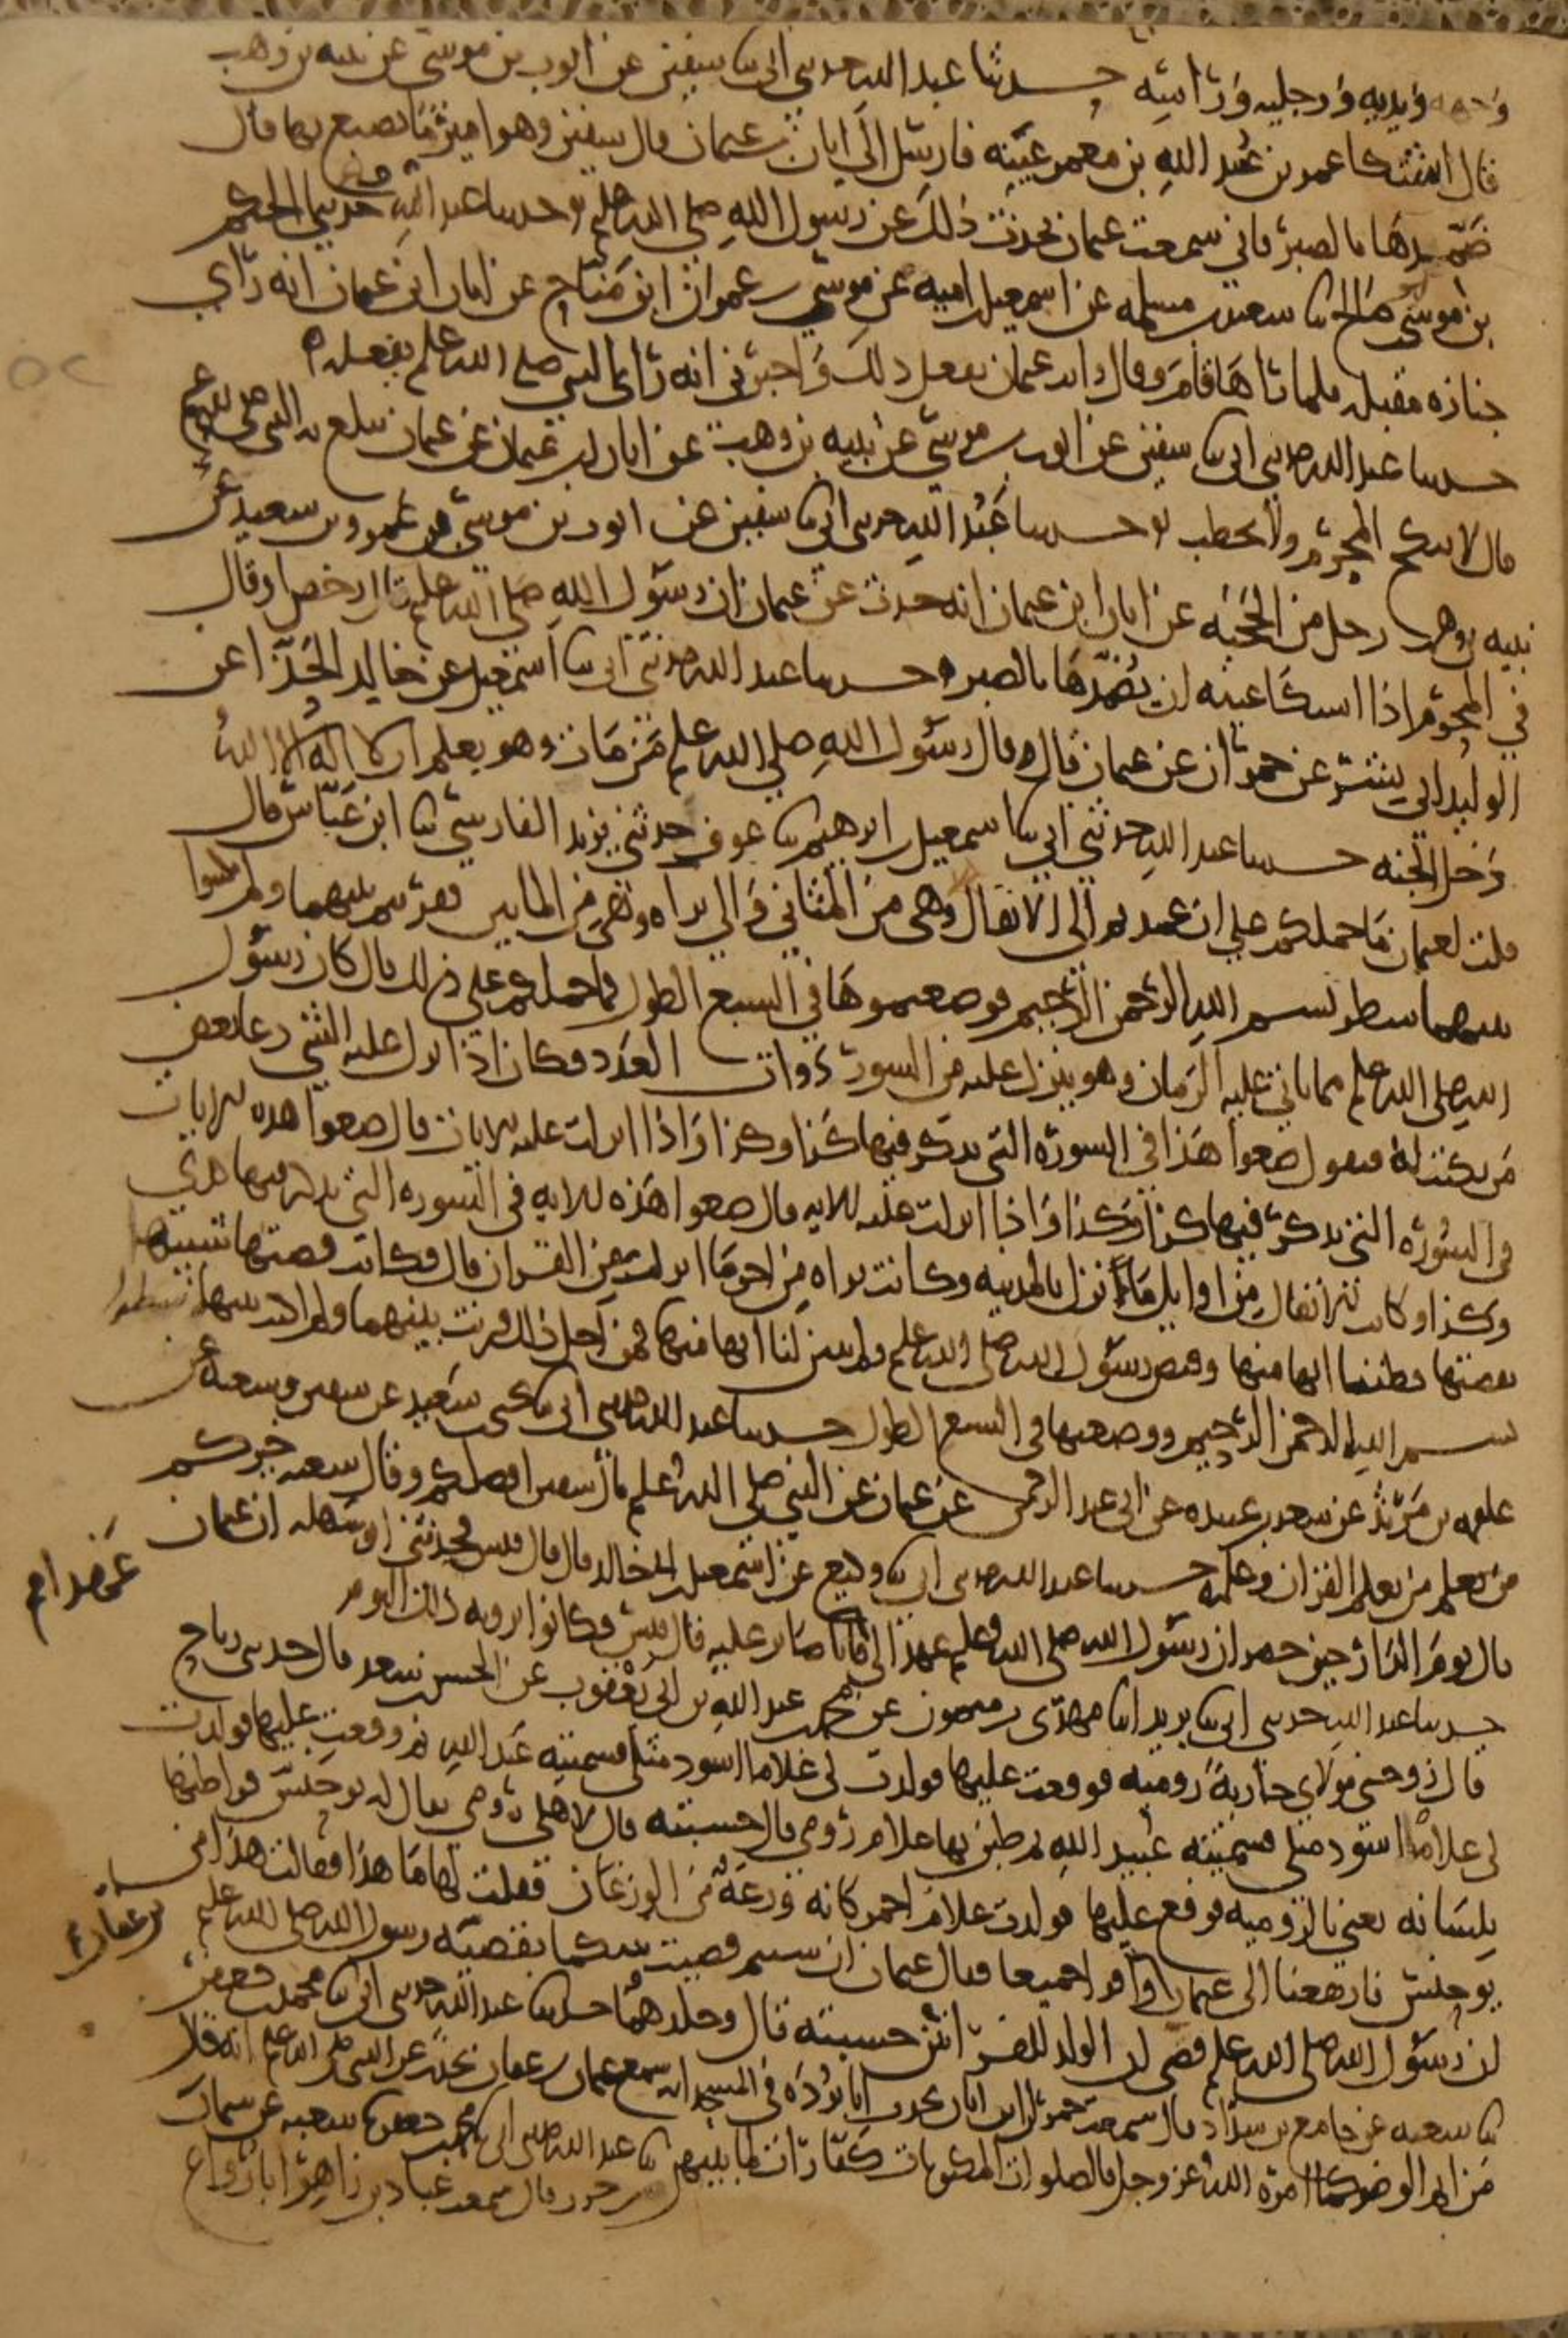 وجهه ويديه ورجليه وراسه حدثنا عبد الله حدثني ابي ثنا سفين عن ايوب بن موسى عن نبيه بن وهب
قال اشتكا عمر بن عبيد الله بن معمر عينيه فارسل الى ابان بن عثمان قال سفين وهو امير ما يصنع بهما قال
ضمدهما بالصبر فاني سمعت عثمان يحدث ذلك عن رسول الله صلى الله علم حدثنا عبد الله حدثني الحكم
بن موسى ابو صالح ثنا سعيد بن مسلمه عن اسمعيل بن اميه عن موسى بن عمران ابن مناح عن ابان ابن عثمان انه راى
جنازه مقبله فلما راها قام وقال رايت عثمان يفعل ذلك واخبرني انه راى النبي صلى الله علم يفعله
حدثنا عبد الله حدثني ابي ثنا سفين عن ايوب بن موسى عن نبيه بن وهب عن ابان بن عثمان عن عثمان يبلغ به النبي صلى الله علم
قال لا ينكح المحرم ولا يخطب حدثنا عبد الله حدثني ابي ثنا سفين عن ايوب بن موسى بن عمرو بن سعيد عن
نبيه بن وهب رجل من الحجبه عن ابان ابن عثمان انه حدث عن عثمان ان رسول الله صلى الله علم قال رخص او قال
في المحرم اذا اشتكا عينه ان يضمدها بالصبر حدثنا عبد الله حدثني ابي ثنا اسمعيل عن خالد الحذا عن
الوليد ابي بشر عن حمران عن عثمان قال قال رسول الله صلى الله علم من مات وهو يعلم ان لا اله الا الله
دخل الجنه حدثنا عبد الله حدثني ابي ثنا اسمعيل بن ابرهيم ثنا عوف حدثني يزيد الفارسي ثنا ابن عباس قال
قلت لعثمان ما حملكم على ان عمدتم الى الانفال وهي من المثاني والى براه وهي من المايين فقرنتم بينهما ولم تكتبوا
بينهما سطر بسم الله الرحمن الرحيم فوضعتموها في السبع الطول فما حملكم على ذلك قال كان رسول
الله صلى الله علم مما ياتي عليه الزمان وهو ينزل عليه من السور ذوات العدد فكان اذا انزل عليه الشي دعا بعض
من يكتب له فيقول ضعوا هذا في السورة التي يذكر فيها كذا وكذا واذا انزلت عليه الايات قال ضعوا هذه الايات
في السورة التي يذكر فيها كذا وكذا واذا انزلت عليه الايه قال ضعوا هذه الايه في السوره التي يذكر فيها كذي
وكذا وكانت الانفال من اوايل ما نزل بالمدينه وكانت براه من اخر ما انزلت من القران قال فكانت قصتها شبيهه
بقصتها فظننا انها منها وقبض رسول الله صلى الله علم ولم يبين لنا انها منها فمن اجل ذلك قرنت بينهما ولم اكتب بينهما سطر
بسم الله الرحمن الرحيم ووضعتها في السبع الطول حدثنا عبد الله حدثني ابي ثنا يحيى بن سعيد عن سفين وشعبه عن
علقمه بن مرثد عن سعد بن عبيده عن ابي عبد الرحمن عن عثمان عن النبي صلى الله علم قال سفين افضلكم وقال شعبه خيركم
من تعلم من تعلم القران وعلمه حدثنا عبد الله حدثني ابي ثنا وكيع عن اسمعيل بن ابي خالد قال قال قيس فحدثني ابو سهله ان عثمان
قال يوم الدار حين حصر ان رسول الله صلى الله علم عهد الى فانا صابر عليه قال قيس فكانوا يرونه ذلك اليوم
حدثنا عبد الله حدثني ابي ثنا يزيد انا مهدي بن ميمون عن محمد بن عبد الله بن ابي يعقوب عن الحسن بن سعد قال حدثني رباح
قال زوجني مولاي جارية رومية فوقعت عليها فولدت لي غلاما اسود مثلي فسميته عبد الله ثم وقعت عليها فولدت
لي غلاما اسود مثلي فسميته عبيد الله ثم طبن بها غلام رومي قال حسبته قال لاهلي رومي يقال له يوحنس فراطنها
بلسانه يعني بالرومية فوقع عليها فولدت غلام احمر كانه وزغة من الوزغان فقلت لها ما هذا فقالت هذا من
يوحنس فارتفعنا الى عثمان واقرا جميعا فقال عثمان ان شيتم قضيت بينكما بقضيه رسول الله صلى الله علم
ان رسول الله صلى الله علم قضى ان الولد للفراش حسبته قال وجلدهما حدثنا عبد الله حدثني ابي ثنا محمد بن جعفر
ثنا شعبه عن جامع بن شداد قال سمعت حمران ابن ابان يحدث ابا بردة في المسجد انه سمع عثمان بن عفان يحدث عن النبي صلى الله علم انه قال
من اتم الوضو كما امره الله عز وجل فالصلوات المكتوبات كفارات لما بينهن ثنا عبد الله حدثني ابي ثنا محمد بن جعفر ثنا شعبه عن سماك
بن حرب قال سمعت عباد بن زاهر ابا رواع
بن عفان